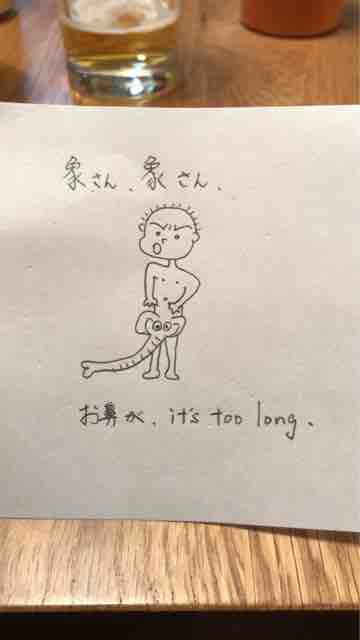 象さん、象さん、
お鼻が、it's too long.